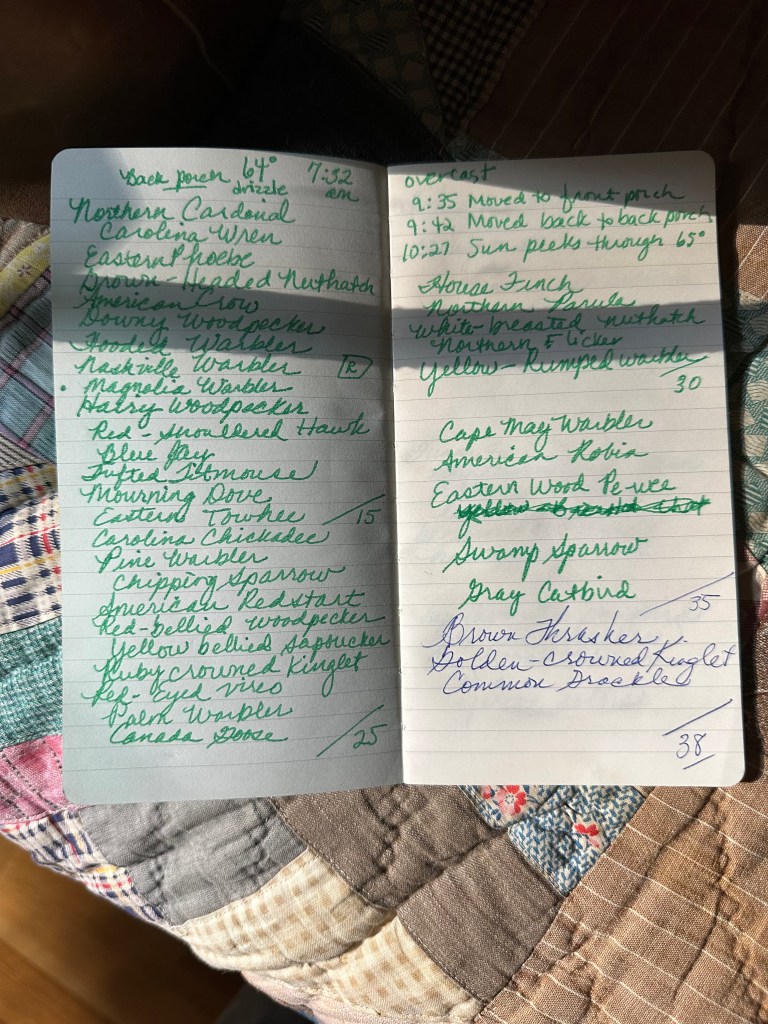 Back porch 64° 7:32
drizzle am
Northern Cardinal
Carolina Wren
Eastern Phoebe
Brown-Headed Nuthatch
American Crow
Downy Woodpecker
Hooded Warbler
Nashville Warbler R
Magnolia Warbler
Hairy Woodpecker
Red-shouldered Hawk
Blue Jay
Tufted Titmouse
Mourning Dove
Eastern Towhee /15
Carolina Chickadee
Pine Warbler
Chipping Sparrow
American Redstart
Red-bellied Woodpecker
Yellow bellied Sapsucker
Ruby crowned Kinglet
Red-Eyed Vireo
Palm Warbler
Canada Goose /25
overcast
9:35 Moved to front porch
9:42 Moved back to back porch
10:27 Sun peeks through 65°
House Finch
Northern Parula
White-breasted nuthatch
Northern Flicker
Yellow-Rumped warbler
/30
Cape May Warbler
American Robin
Eastern Wood Pe-wee
Swamp Sparrow
Gray Catbird
/35
Brown Thrasher
Golden-crowned Kinglet
Common Grackle
/38